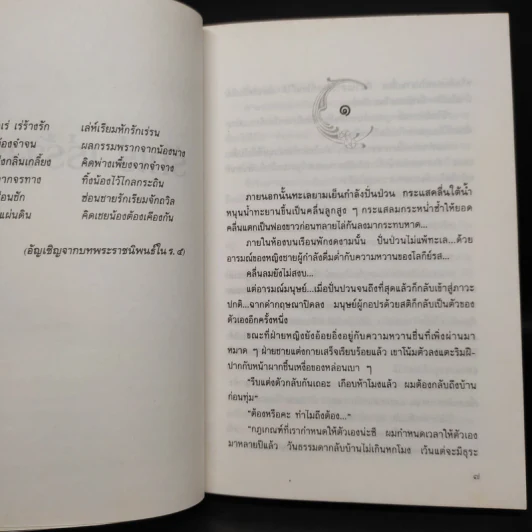 เร่ เร่ร้างรัก เล่ห์เรียมหักรักเร่รน
องจำจน ผลกรรมพรากจากน้องนาง
งกลิ่นเกลี้ยง คิดพ่างเพี้ยงจากจำจาง
จากจรทาง ทิ้งน้องไว้ไกลกระถิน
อนชัก ซ่อนชายรักเรียมจักถวิล
แผ่นดิน คิดเชยน้องต้องเคืองกัน
(อัญเชิญจากบทพระราชนิพนธ์ใน ร. ๕)
๑
ภายนอกนั้นทะเลยามเย็นกำลังปั่นป่วน กระแสคลื่นใต้น้ำ
หนุนน้ำทะยานขึ้นเป็นคลื่นลูกสูง ๆ กระแสลมกระหน่ำซ้ำให้ยอด
คลื่นแตกเป็นฟองขาวก่อนทลายโถ่มกลิ้งลงมากระทบหาด...
ภายในห้องบนเรือนพักงดงามนั้น ปั่นป่วนไม่แพ้ทะเล...ด้วย
อารมณ์ของหญิงชายผู้กำลังดื่มด่ำกับความหวานของโลกีย์รส...
คลื่นลมยังไม่สงบ...
แต่อารมณ์มนุษย์...เมื่อปั่นป่วนจนถึงที่สุดแล้วก็กลับเข้าสู่ภาวะ
ปกติ...จากดำกฤษณาปิดลง มนุษย์ผู้กอปรด้วยสติก็กลับเป็นตัวของ
ตัวเองอีกครั้งหนึ่ง
ขณะที่ฝ่ายหญิงยังอ้อยอิ่งอยู่กับความหวานชื่นที่เพิ่งผ่านมา
หมาด ๆ ฝ่ายชายแต่งกายเสร็จเรียบร้อยแล้ว เขาโน้มตัวลงแตะริมฝี-
ปากกับหน้าผากชื้นเหงื่อของหล่อนเบา ๆ
"รีบแต่งตัวกลับกันเถอะ เกือบห้าโมงแล้ว ผมต้องกลับถึงบ้าน
ก่อนทุ่ม"
"ต้องหรือคะ ทำไมถึงต้อง..."
"กฎเกณฑ์ที่เรากำหนดให้ตัวเองน่ะซี ผมกำหนดเวลาให้ตัวเอง
มาหลายปีแล้ว วันธรรมดากลับบ้านไม่เกินหกโมง เว้นแต่จะมีธุระ
๗